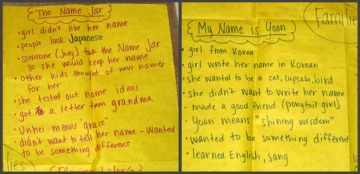 The Name Jar
• girl didn't like her name
• people look Japanese
• someone (boy) took the Name Jar
so she would keep her name
• other kids thought of new names
for her
• she tested out name ideas
• got a letter from grandma
• Unhei means "grace"
• didn't want to tell her name - wanted
to be something different
My Name is Yoon
• girl from Korea
• girl wrote her name in Korean
• she wanted to be a cat, cupcake, bird
• she didn't want to write her name
• made a good friend (ponytail girl)
• Yoon means "shining wisdom"
• wanted to be something different
• learned English, sang